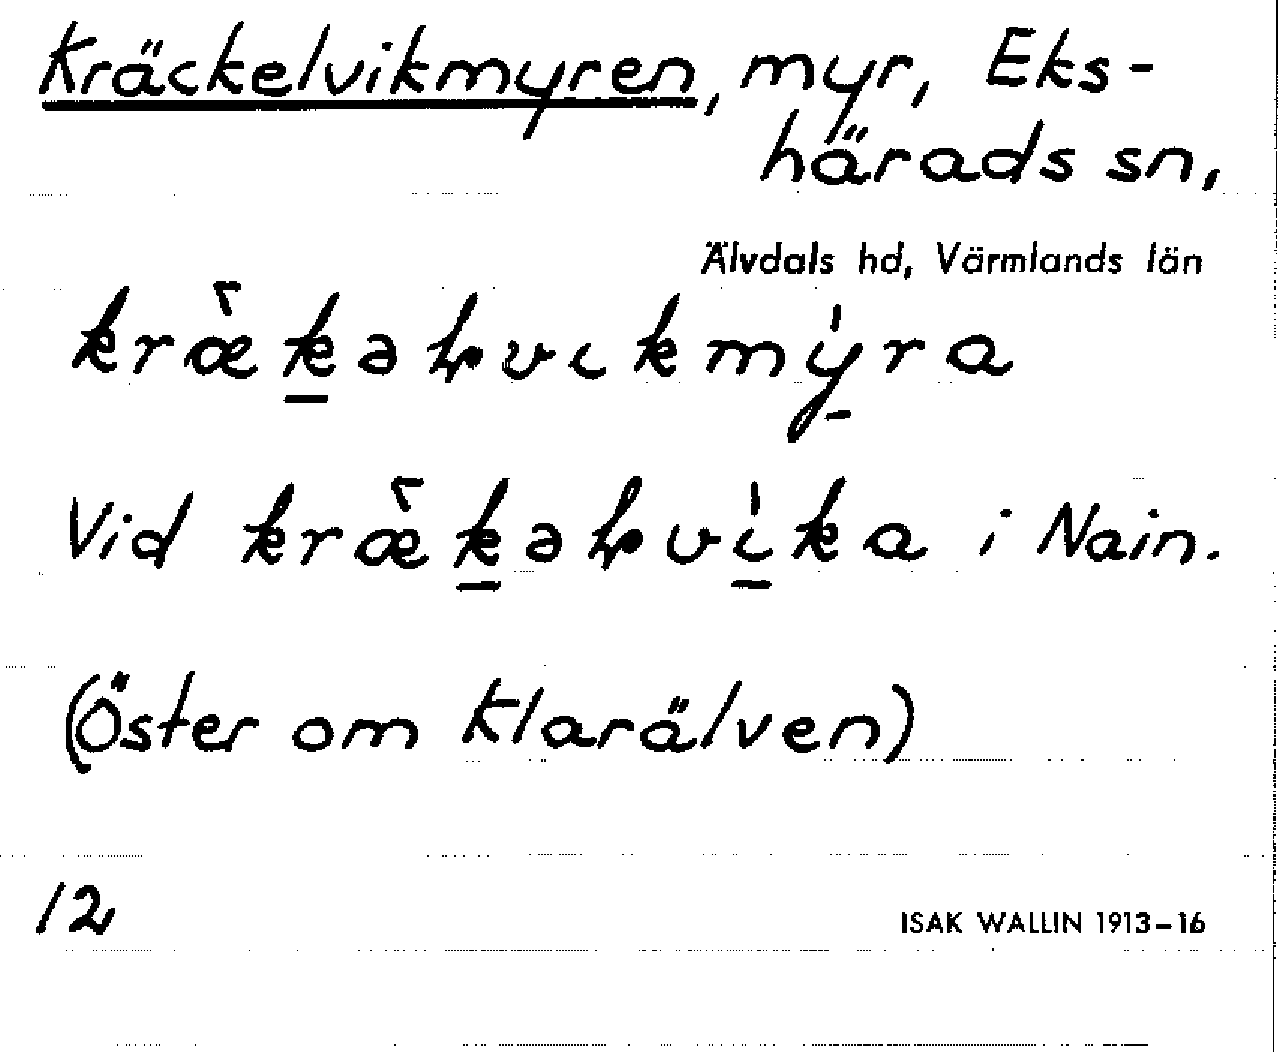 Kräckelvikmyren, myr, Eks-
härads sn,
Älvdals hd, Värmlands län
kræ̀k̠əɽvɩkmy̠̍ra
Vid kræ̀k̠əɽvɩ̠̍ka i Nain.
(Öster om Klarälven)
12
ISAK WALLIN 1913-16